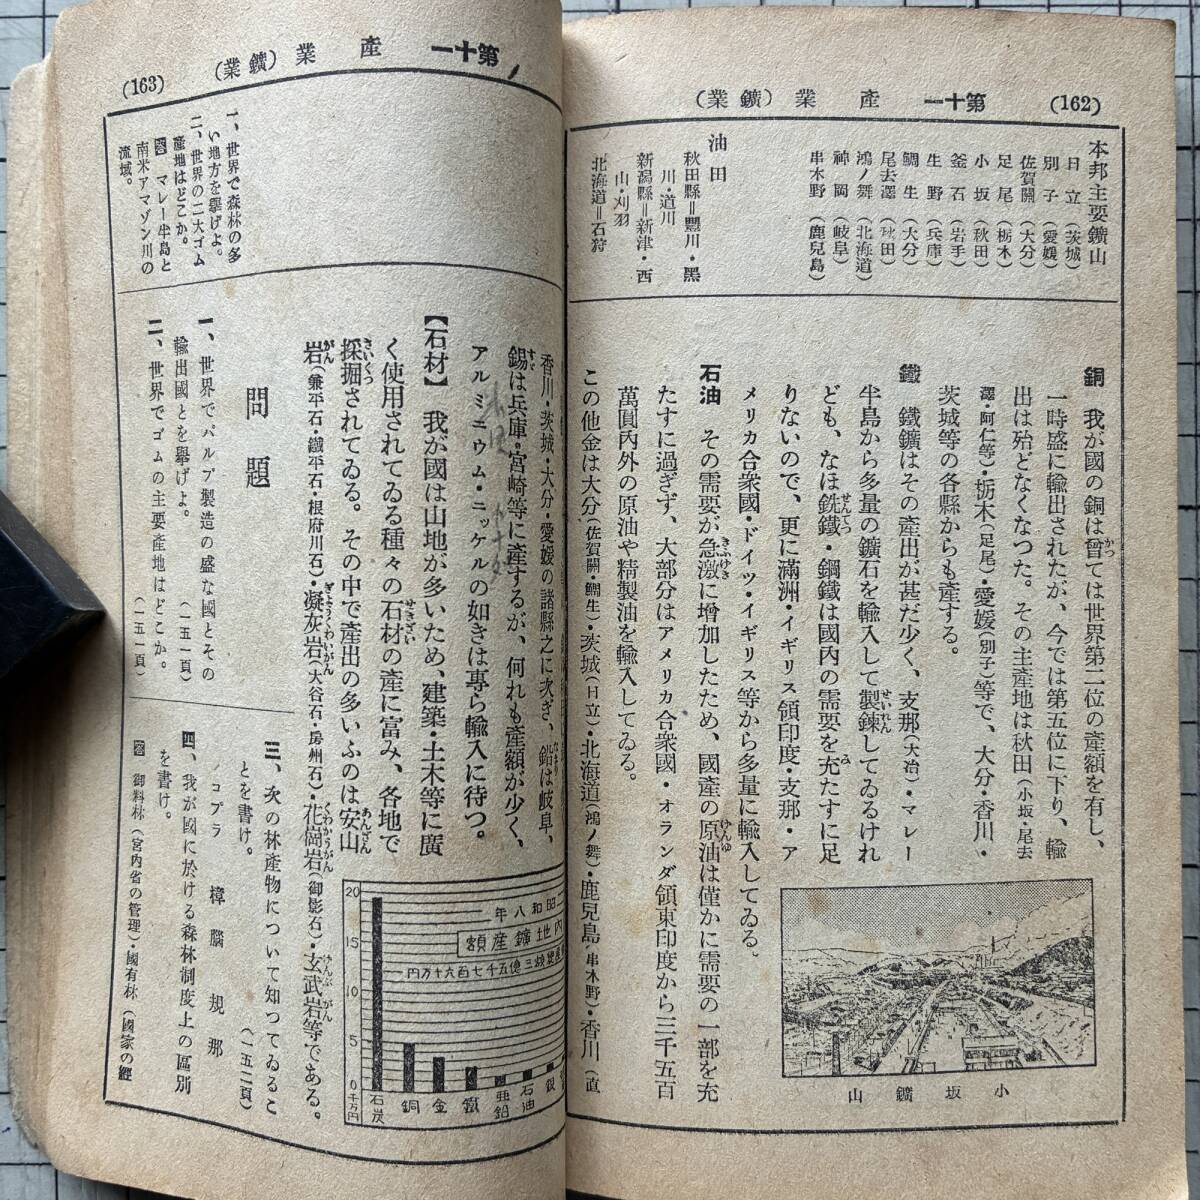 (162)
第十一 產業(鑛業)
本邦主要鑛山
日立(茨城)
別子(愛媛)
佐賀關(大分)
足尾(栃木)
小坂(秋田)
釜石(岩手)
生野(兵庫)
鯛生(大分)
尾去澤(秋田)
鴻ノ舞(北海道)
神岡(岐阜)
串木野(鹿兒島)
油田
秋田縣=豐川・黑
川・道川
新潟縣=新津・西
山・刈羽
北海道=石狩
銅 我が國の銅は曾ては世界第二位の產額を有し、
一時盛に輸出されたが、今では第五位に下り、輸
出は殆どなくなつた。その主產地は秋田(小坂・尾去
澤・阿仁等)・栃木(足尾)・愛媛(別子)等で、大分・香川・
茨城等の各縣からも產する。
鐵 鐵鑛はその產出が甚だ少く、支那(大冶)・マレー
半島から多量の鑛石を輸入して製鍊してゐるけれ
ども、なほ銑鐵・鋼鐵は國內の需要を充たすに足
りないので、更に滿洲・イギリス領印度・支那・ア
メリカ合衆國・ドイツ・イギリス等から多量に輸入してゐる。
石油 その需要が急激に增加したため、國產の原油は僅かに需要の一部を充
たすに過ぎず、大部分はアメリカ合衆國・オランダ領東印度から三千五百
萬圓內外の原油や精製油を輸入してゐる。
この他金は大分(佐賀關・鯛生)・茨城(日立)・北海道(鴻ノ舞)・鹿兒島(串木野)・香川(直
小坂鑛山
(163)
第十一 產業(鑛業)
一、世界で森林の多
い地方を擧げよ。
二、世界の二大ゴム
產地はどこか。
答 マレー半島と
南米アマゾン川の
流域。
香川・茨城・大分・愛媛の諸縣之に次ぎ、鉛は岐阜、
錫は兵庫・宮崎等に產するが、何れも產額が少く、
アルミニウム・ニッケルの如きは專ら輸入に待つ。
【石材】 我が國は山地が多いため、建築・土木等に廣
く使用されてゐる種々の石材の產に富み、各地で
採掘されてゐる。その中で產出の多いふのは安山
岩(兼平石・鐵平石・根府川石)・凝灰岩(大谷石・房州石)・花崗岩(御影石)・玄武岩等である。
昭和八年
內地鑛產額
三億五千七百六十万円
20
15
10
5
0
千万円
石炭
銅
金
鐵
亞鉛
石油
銀
問題
一、世界でパルプ製造の盛な國とその
輸出國とを擧げよ。 (一五一頁)
二、世界でゴムの主要產地はどこか。
(一五一頁)
三、次の林產物について知つてゐるこ
とを書け。 (一五二頁)
コプラ 樟腦 規那
四、我が國に於ける森林制度上の區別
を書け。
答 御料林(宮內省の管理)・國有林(國家の經